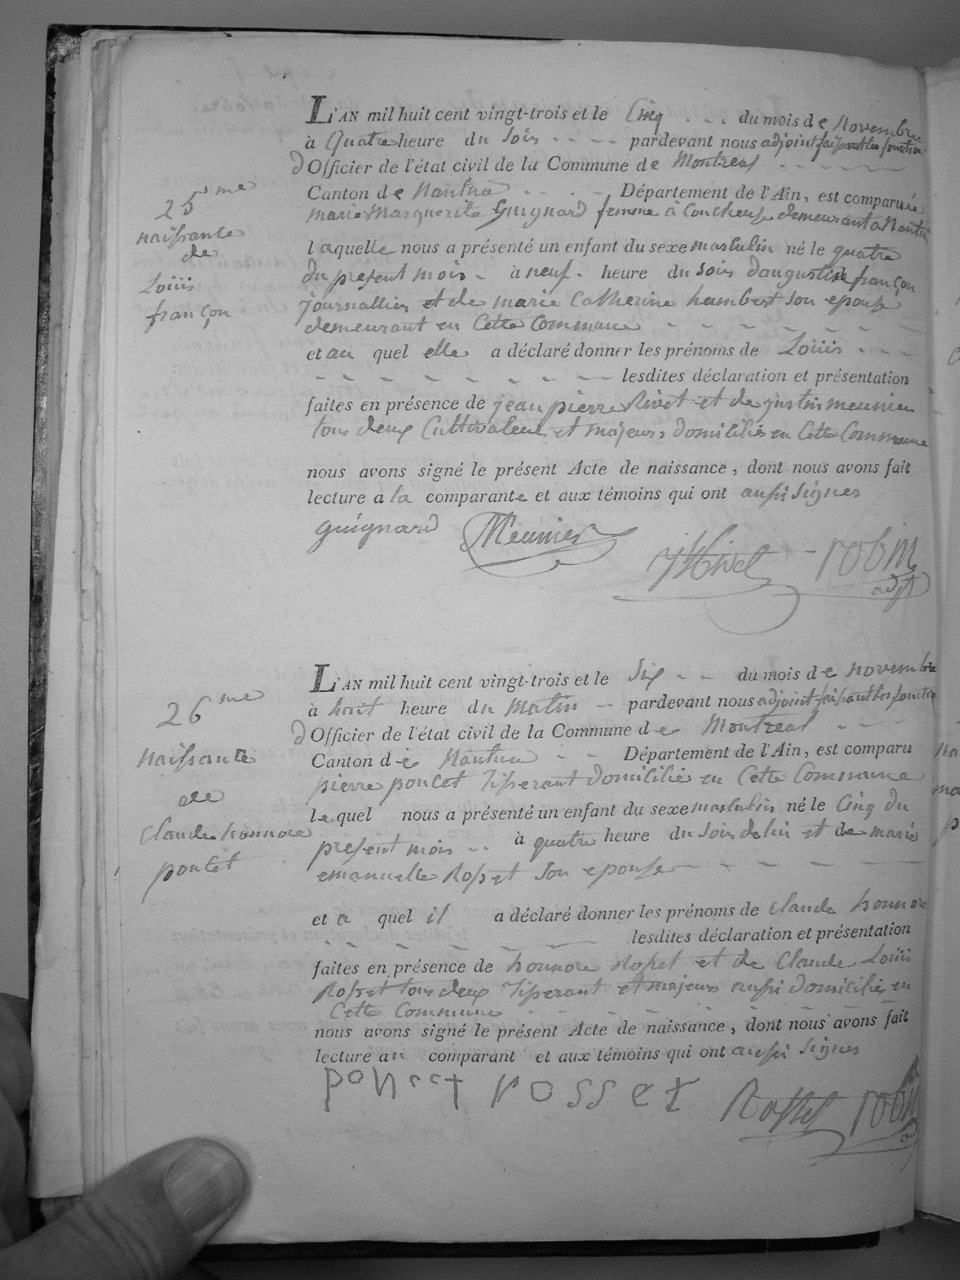 L'AN mil huit cent vingt-trois et le Cinq du mois de novembre
à quatre heure du soir pardevant nous adjoint faisant les fonction
d Officier de l'état civil de la Commune de Montreal
Canton de Nantua Département de l'Ain, est comparue
marie Marguerite Guignard femme à Coucheuse demeurant a Nantua
25me
naissance
de
Loüis
françon
laquelle nous a présenté un enfant du sexe masculin né le quatre
du present mois à neuf heure du soir daugustin françon
journallier et de marie Catherine humbert son epouse
demeurant en Cette Commune
et au quel elle a déclaré donner les prénoms de Loüis
lesdites déclaration et présentation
faites en présence de jean pierre Rivet et de justin meunier
tous deux Cultivateur et majeurs domiciliés en Cette Commune
nous avons signé le présent Acte de naissance, dont nous avons fait
lecture a la comparante et aux témoins qui ont aussi signes
guignard Meunier Rivet robin
adjt
L'AN mil huit cent vingt-trois et le Six du mois de novembre
à huit heure du Matin pardevant nous adjoint faisant les fonction
d Officier de l'état civil de la Commune de Montreal
Canton de Nantua Département de l'Ain, est comparu
pierre poncet tisserant domicilié en Cette Commune
26me
naissance
de
Claude honnore
poncet
lequel nous a présenté un enfant du sexe masculin né le Cinq du
présent mois à quatre heure du soir de lui et de marie
emanuelle Rosset son epouse
et a quel il a déclaré donner les prénoms de Claude honnore
lesdites déclaration et présentation
faites en présence de honnore Rosset et de Claude Loüis
Rosset tous deux tisserant et majeurs aussi domiciliés en
Cette Commune
nous avons signé le présent Acte de naissance, dont nous avons fait
lecture au comparant et aux témoins qui ont aussi signes
poncet rosset Rosset robin